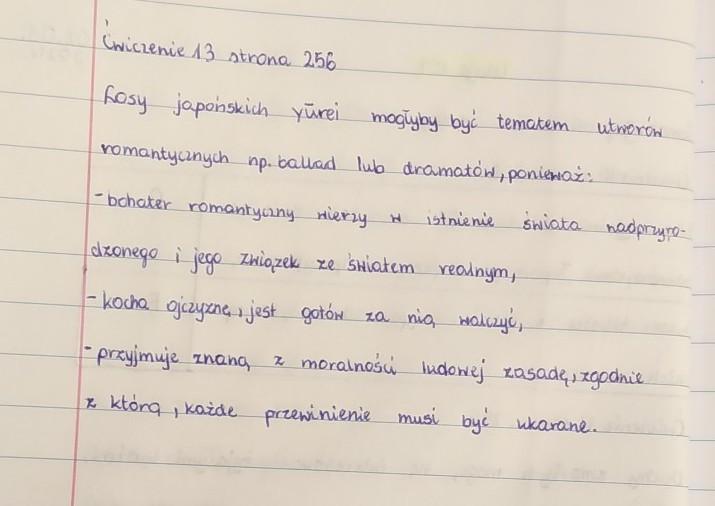 Ćwiczenie 13 strona 256
Losy japońskich yūrei mogłyby być tematem utworów
romantycznych np. ballad lub dramatów, ponieważ:
- bohater romantyczny wierzy w istnienie świata nadprzyro-
dzonego i jego związek ze światem realnym,
- kocha ojczyznę, jest gotów za nią walczyć,
- przyjmuje znaną z moralności ludowej zasadę, zgodnie
z którą, każde przewinienie musi być ukarane.